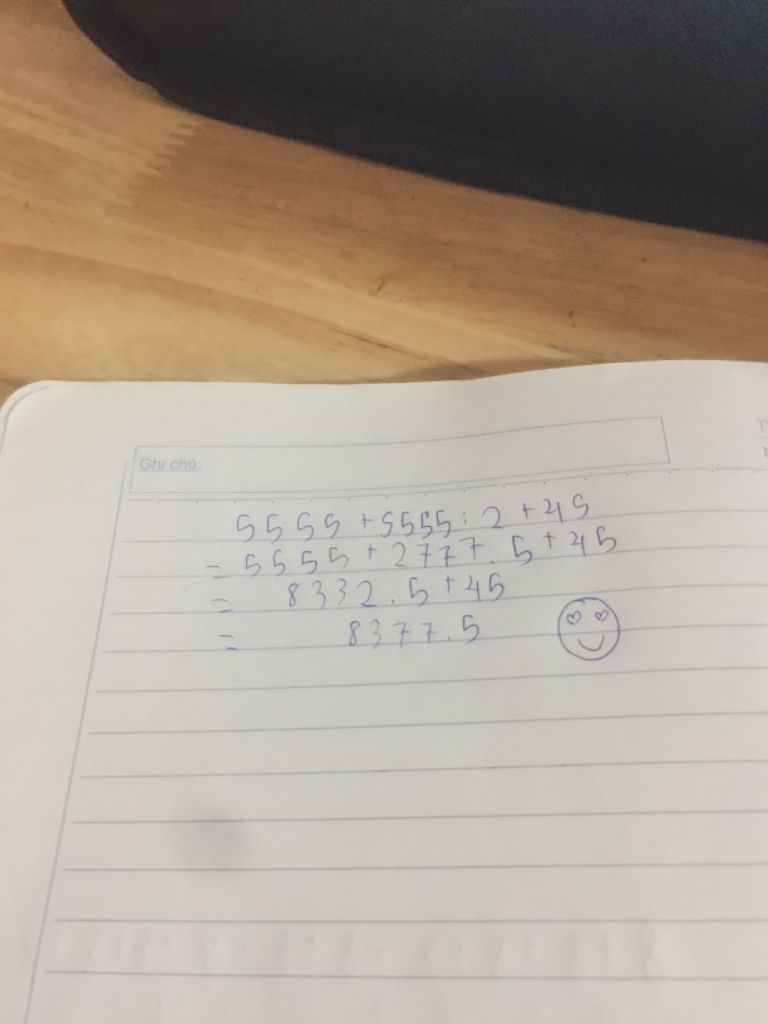 Ghi chú:
5555 + 5555 : 2 + 45
= 5555 + 2777.5 + 45
= 8332.5 + 45
= 8377.5